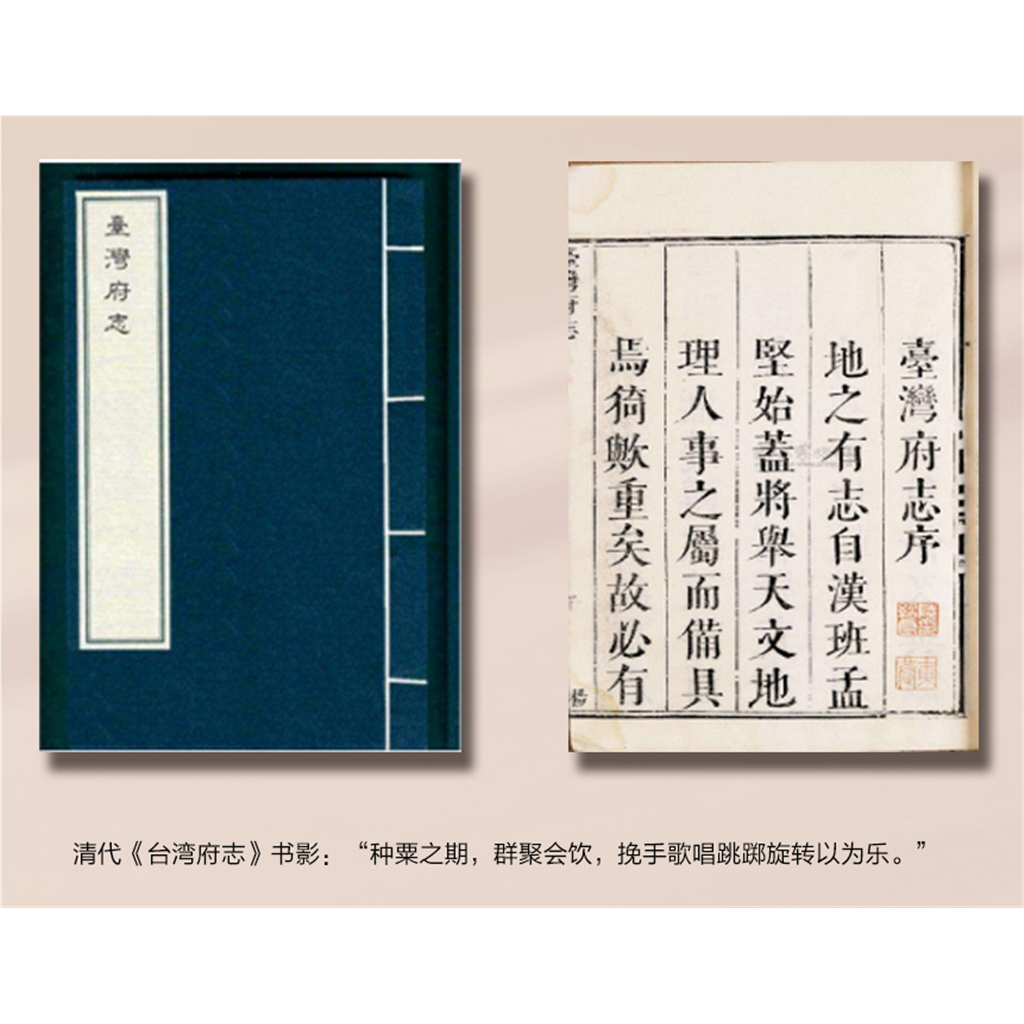 臺灣府志
臺灣府志序
地之有志自漢班孟
堅始蓋將舉天文地
理人事之屬而備具
焉猗歟重矣故必有
清代《台湾府志》书影：“种粟之期，群聚会饮，挽手歌唱跳踯旋转以为乐。”